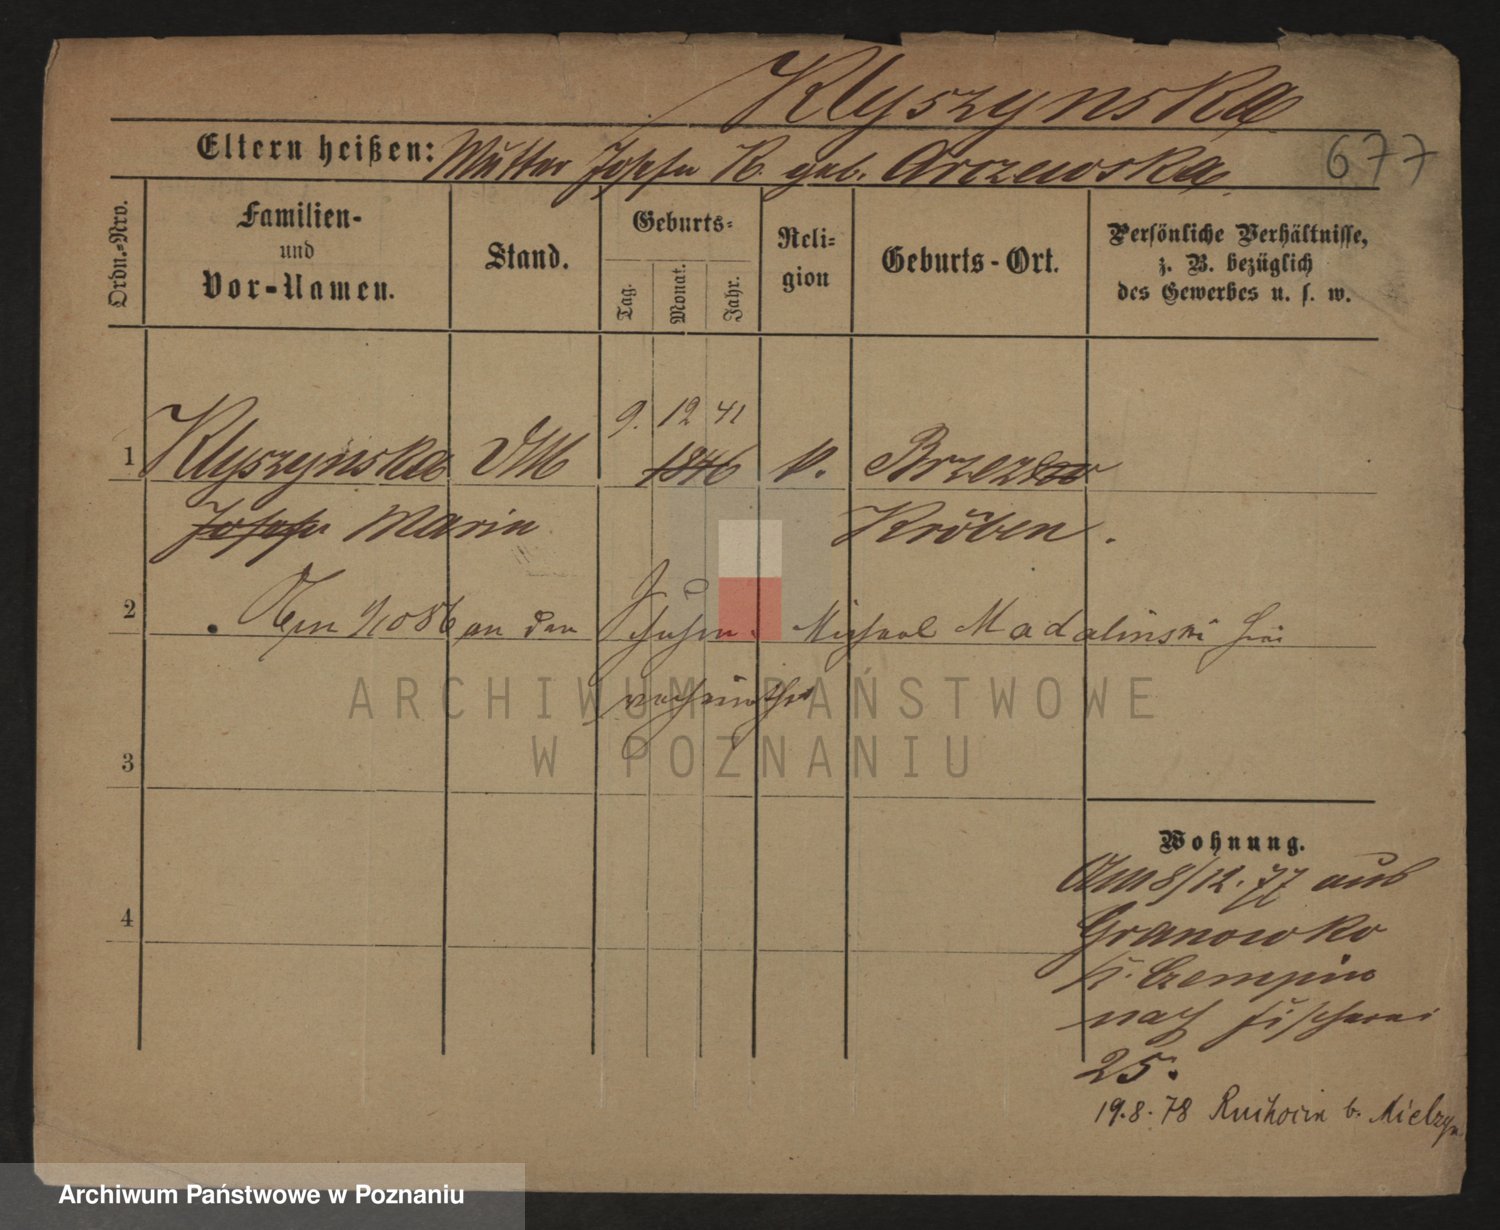 Klyszynska
Eltern heißen: Mutter Josefa K. geb. Arczewska
677
Ordn.-Nro.
Familien-
und
Vor-Namen.
Stand.
Geburts-
Tag. Monat. Jahr.
Reli-
gion
Geburts-Ort.
Persönliche Verhältnisse,
z. B. bezüglich
des Gewerbes u. s. w.
9. 12 41
1 Klyszynska DM 1846 k.
Josefa Maria Kröben.
2 Am 1/10 86 an den Michael Madalinski
3
Wohnung.
Am 8/12. 77 aus
Granowko
4
K. Czempin
nach Fischerei
25.
19.8.78 b. Mielzyn
ARCHIWUM PAŃSTWOWE
W POZNANIU
Archiwum Państwowe w Poznaniu